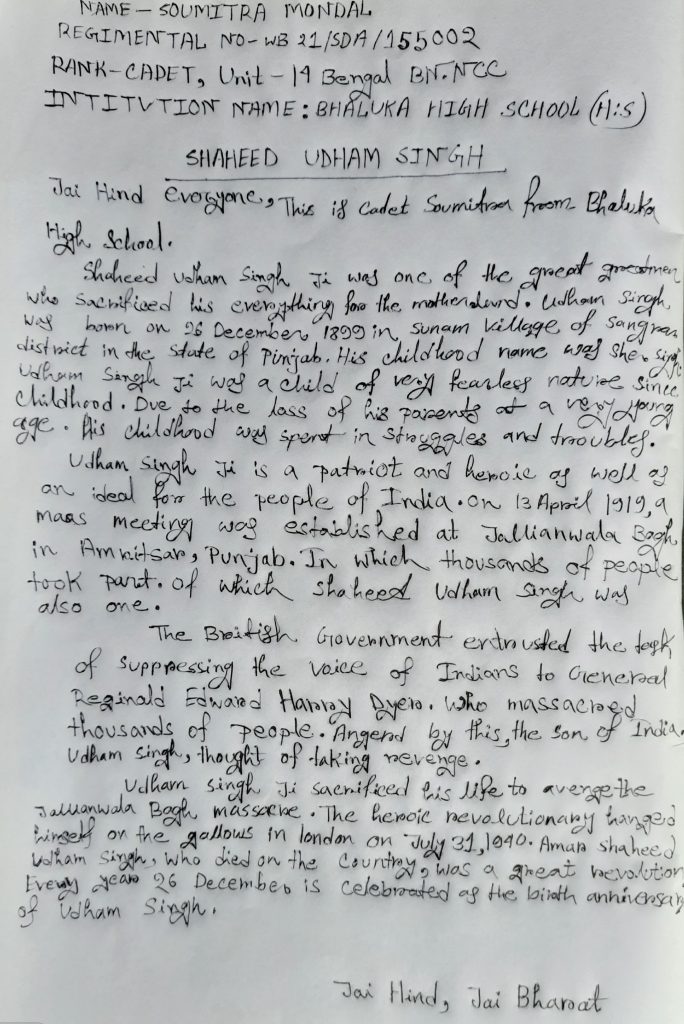 NAME - SOUMITRA MONDAL
REGIMENTAL NO-WB 21/SDA/155002
RANK-CADET, Unit - 14 Bengal BN.NCC
INTITVTION NAME: BHALUKA HIGH SCHOOL (H:S)
SHAHEED UDHAM SINGH
Jai Hind everyone, This is Cadet Soumitra from Bhaluka
High School.
Shaheed Udham Singh Ji was one of the great greatmen
who sacrificed his everything for the motherland. Udham Singh
was born on 26 December 1899 in sunam village of Sangrur
district in the State of Punjab. His childhood name was Sher Singh
Udham Singh Ji was a child of very fearless nature since
childhood. Due to the loss of his parents at a very young
age. His childhood was spent in struggles and troubles.
Udham Singh Ji is a patriot and heroic as well as
an ideal for the people of India. on 13 April 1919, a
maas meeting was established at Jallianwala Bagh
in Amritsar, Punjab. In which thousands of people
took part. of which shaheed Udham Singh was
also one.
The British Government entrusted the task
of suppressing the voice of Indians to General
Reginald Edward Harry Dyer. Who massacred
thousands of people. Angerd by this, the son of India,
Udham Singh, thought of taking revenge.
Udham Singh Ji sacrificed his life to avenge the
Jallianwala Bagh massacre. The heroic revolutionary hanged
himself on the gallows in london on July 31, 1940. Amar shaheed
Udham Singh, who died on the country, was a great revolution
Every year 26 December is celebrated as the birth anniversary
of Udham Singh.
Jai Hind, Jai Bharat